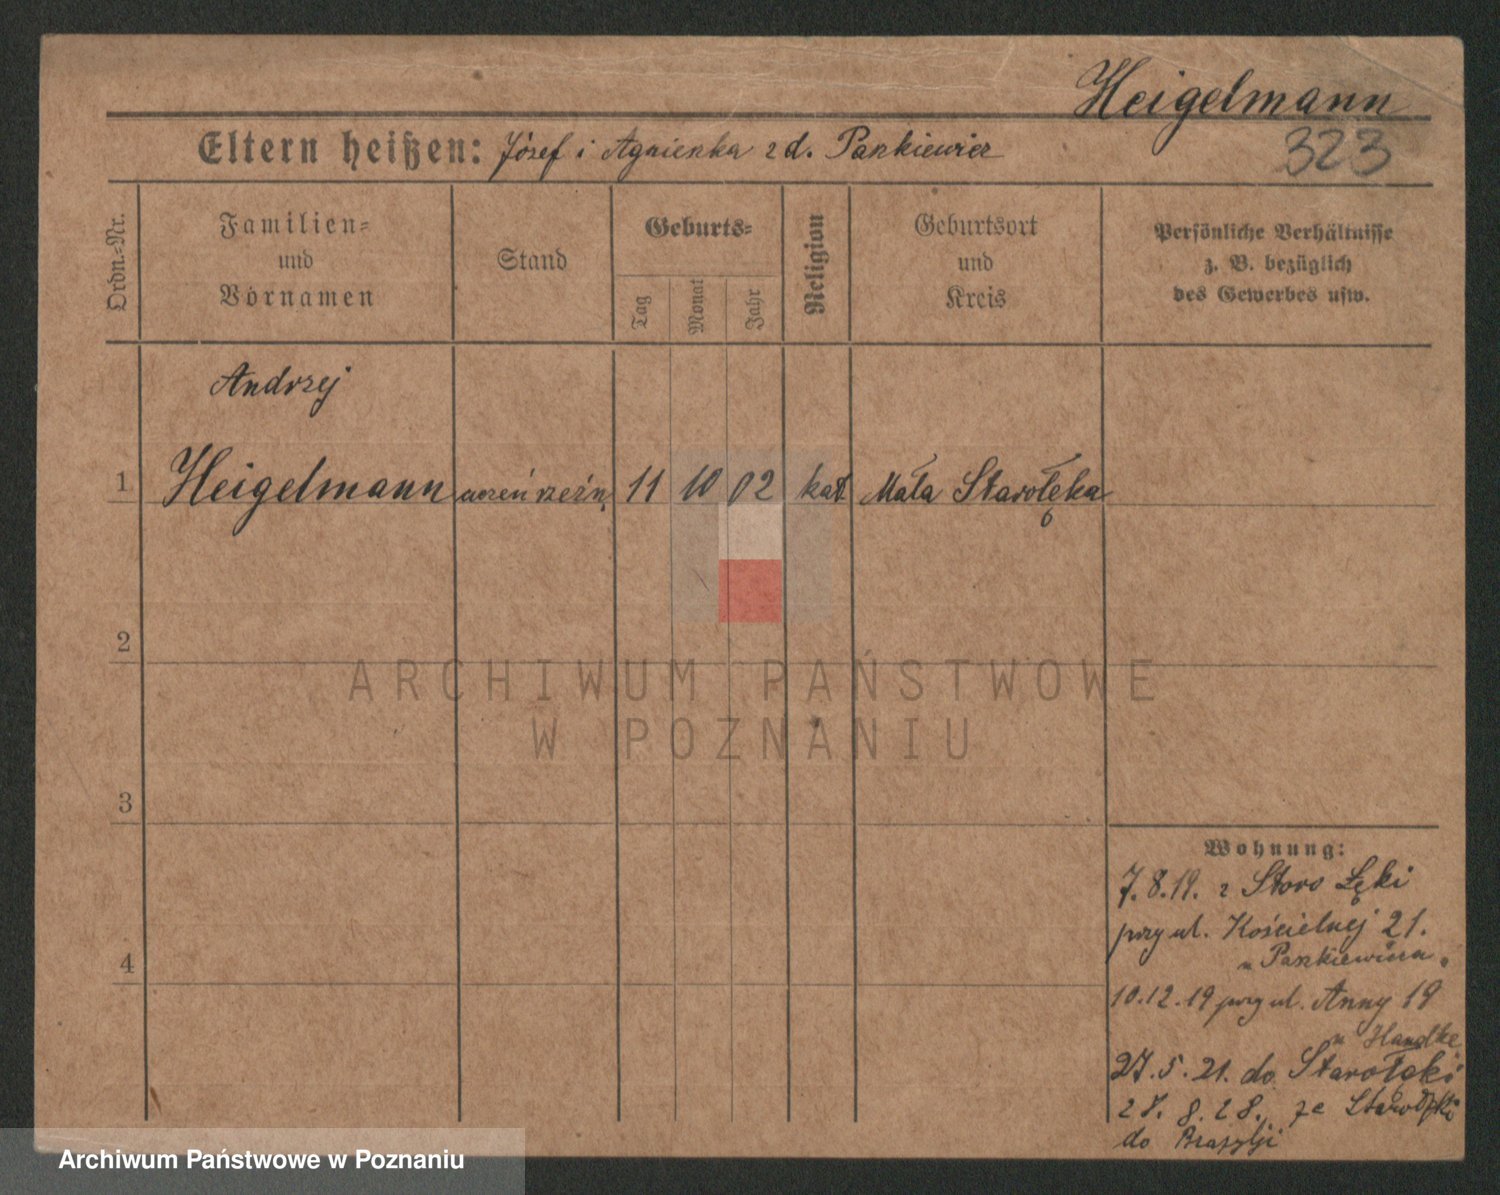 Heigelmann
323
Eltern heißen: Józef i Agnieszka z d. Pankiewicz
Ordn.-Nr.
Familien-
und
Vornamen
Stand
Geburts-
Tag
Monat
Jahr
Religion
Geburtsort
und
Kreis
Persönliche Verhältnisse
z. B. bezüglich
des Gewerbes usw.
Andrzej
1 Heigelmann uczeń rzeźn 11 10 02 kat Mała Starołęka
2
ARCHIWUM PAŃSTWOWE
W POZNANIU
3
Wohnung:
7.8.19. z Staro Łęki
przy ul. Kościelnej 21.
u Pankiewicza
4
10.12.19 przy ul. Anny 19
u Handke
27.5.21. do Starołęki
28. 8. 28. ze Starołęki
do Brazylji
Archiwum Państwowe w Poznaniu